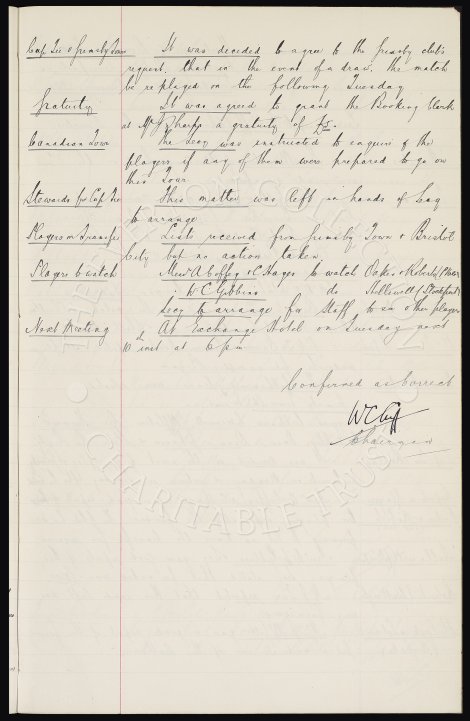 Cup Tie v Grimsby Town It was decided to agree to the Grimsby club's
request, that in the event of a draw, the match
be replayed on the following Tuesday
Gratuity It was agreed to grant the Booking Clerk
at Mr Sharps a gratuity of £5.
Canadian Tour The Secy was instructed to enquire of the
players if any of them were prepared to go on
this Tour
Stewards for Cup Tie This matter was left in hands of Secy
to arrange
Players on Transfer Lists received from Grimsby Town & Bristol
City but no action taken
Players to watch Messrs A Coffey & C Hayes to watch Oakes & Roberts
W C Gibbins do Halliwell (Stockport)
Secy to arrange for Staff to see other players
Next Meeting At Exchange Hotel on Tuesday next
10th inst at 6 pm
Confirmed as Correct
W C Cuff
Chairman
CHARITABLE TRUST